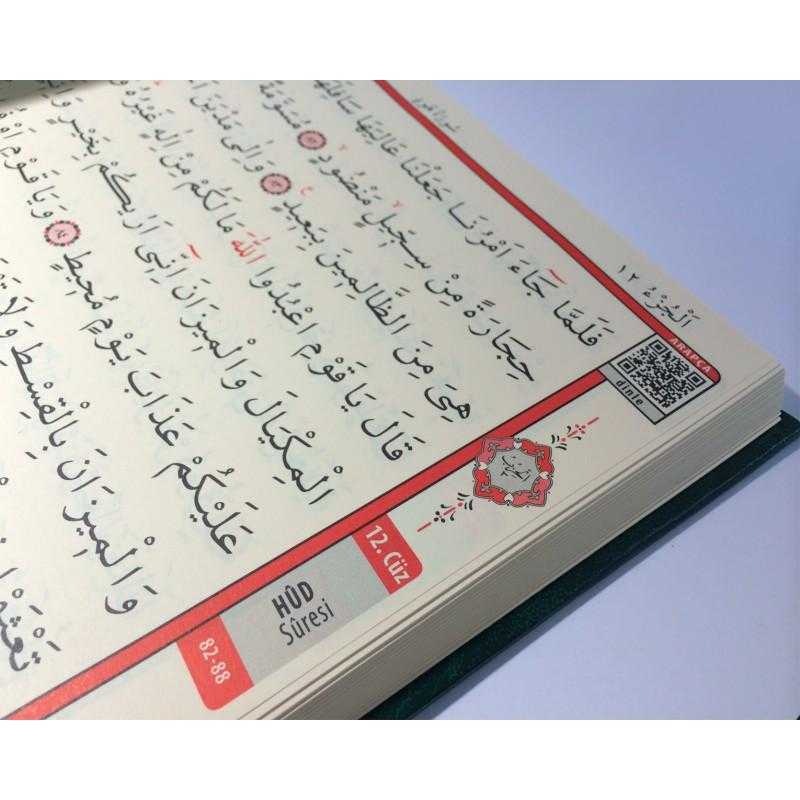 سُورَةُ هُودٍ
اَلْجُزْءُ ١٢
ARAPÇA
dinle
فَلَمَّا جَٓاءَ اَمْرُنَا جَعَلْنَا عَالِيَهَا سَافِلَهَا
حِجَارَةً مِنْ سِجّ۪يلٍ مَنْضُودٍ ﴿٨٢﴾ مُسَوَّمَةً
هِيَ مِنَ الظَّالِم۪ينَ بِبَع۪يدٍ ﴿٨٣﴾ وَاِلٰى مَدْيَنَ
قَالَ يَا قَوْمِ اعْبُدُوا اللّٰهَ مَا لَكُمْ مِنْ اِلٰهٍ غَيْرُهُ
الْمِكْيَالَ وَالْم۪يزَانَ اِنّ۪ٓي اَرٰيكُمْ بِخَيْرٍ
عَلَيْكُمْ عَذَابَ يَوْمٍ مُح۪يطٍ ﴿٨٤﴾ وَيَا قَوْمِ
وَالْم۪يزَانَ بِالْقِسْطِ وَلَا
تَعْثَوْا
12. Cüz
HÛD
Sûresi
82-88